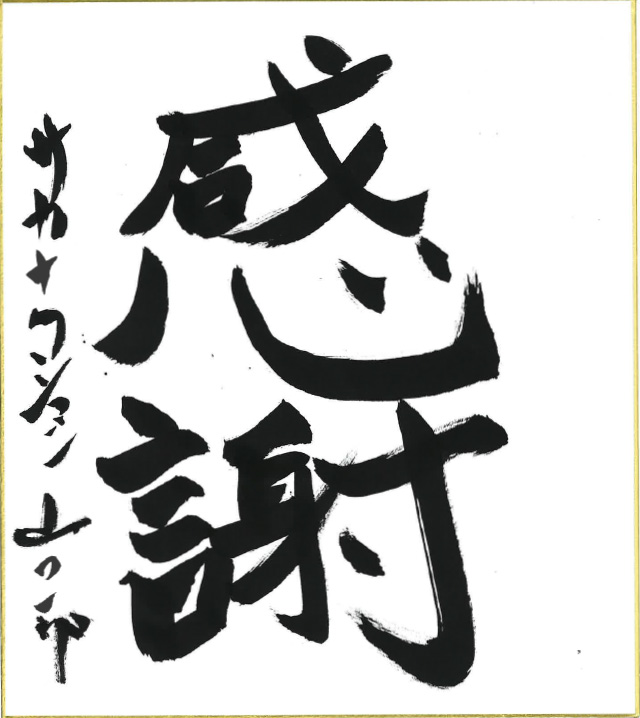 感謝
サカナクション 山口一郎